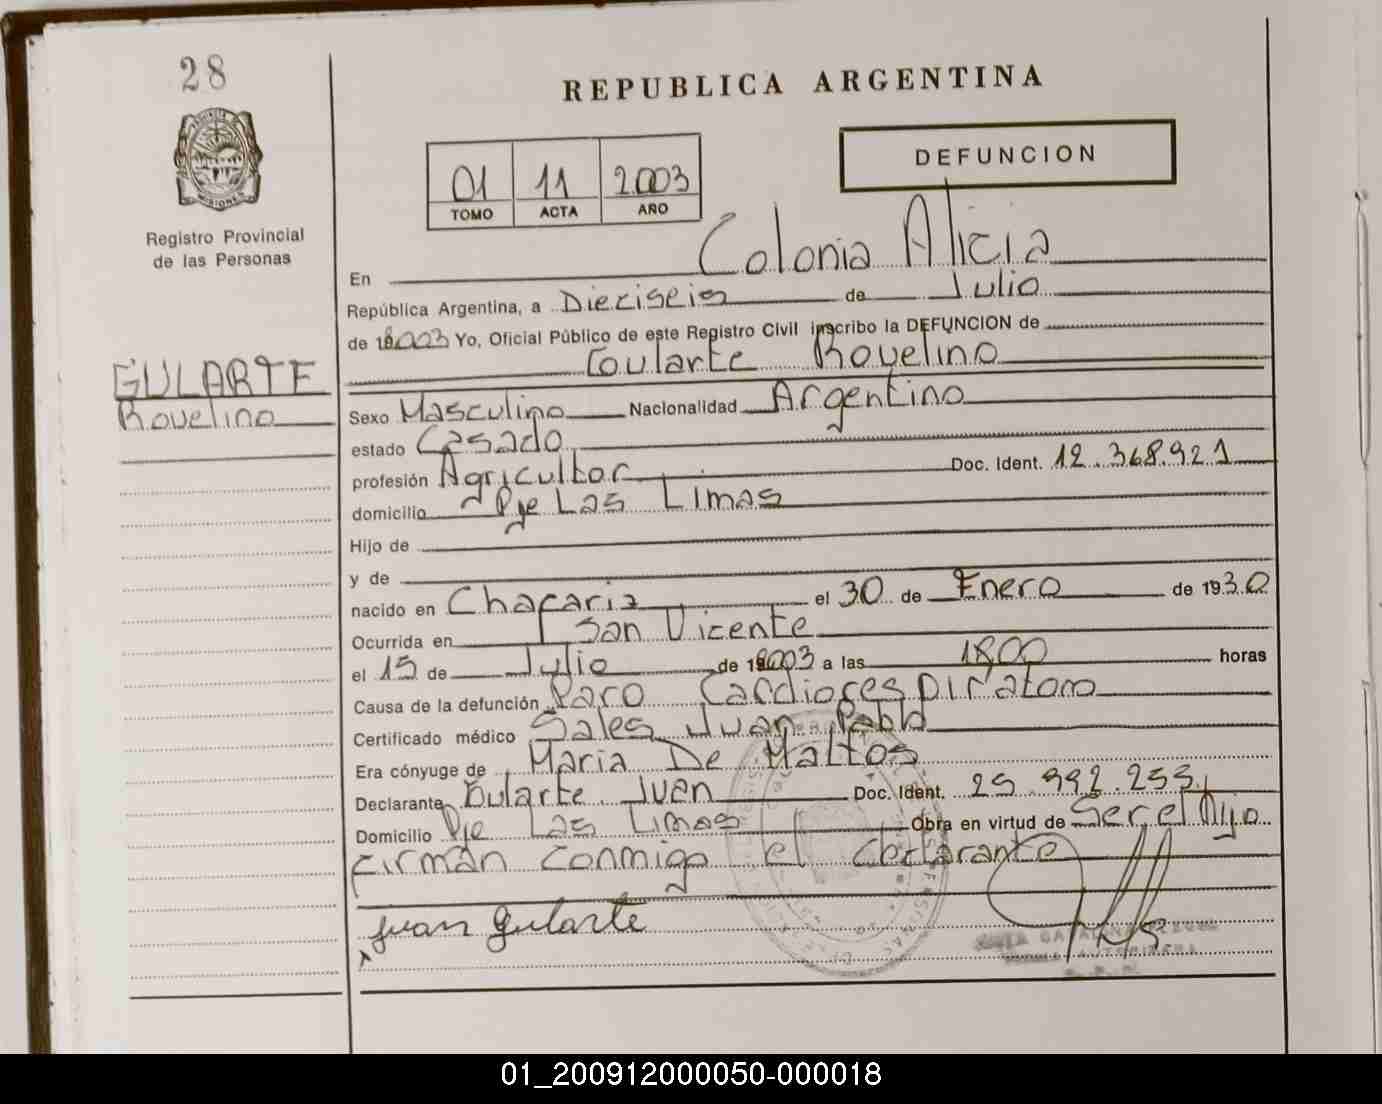 28
REPUBLICA ARGENTINA
01 11 2003
TOMO ACTA AÑO
DEFUNCION
MISIONES
Registro Provincial
de las Personas
GULARTE
Rovelino
En Colonia Alicia
República Argentina, a Dieciseis de Julio
de 2003 Yo, Oficial Público de este Registro Civil inscribo la DEFUNCION de
Gularte Rovelino
Sexo Masculino Nacionalidad Argentino
estado Casado
profesión Agricultor Doc. Ident. 12.368.921
domicilio Pje Las Limas
Hijo de
y de
nacido en Chafariz el 30 de Enero de 1930
Ocurrida en San Vicente
el 15 de Julio de 2003 a las 1800 horas
Causa de la defunción Paro Cardiorespiratorio
Certificado médico Sales Juan Pablo
Era cónyuge de Maria De Mattos
Declarante Gularte Juan Doc. Ident. 25.992.255
Domicilio Pje Las Limas Obra en virtud de Ser el Hijo
Firman conmigo el declarante
juan gularte
01_200912000050-000018